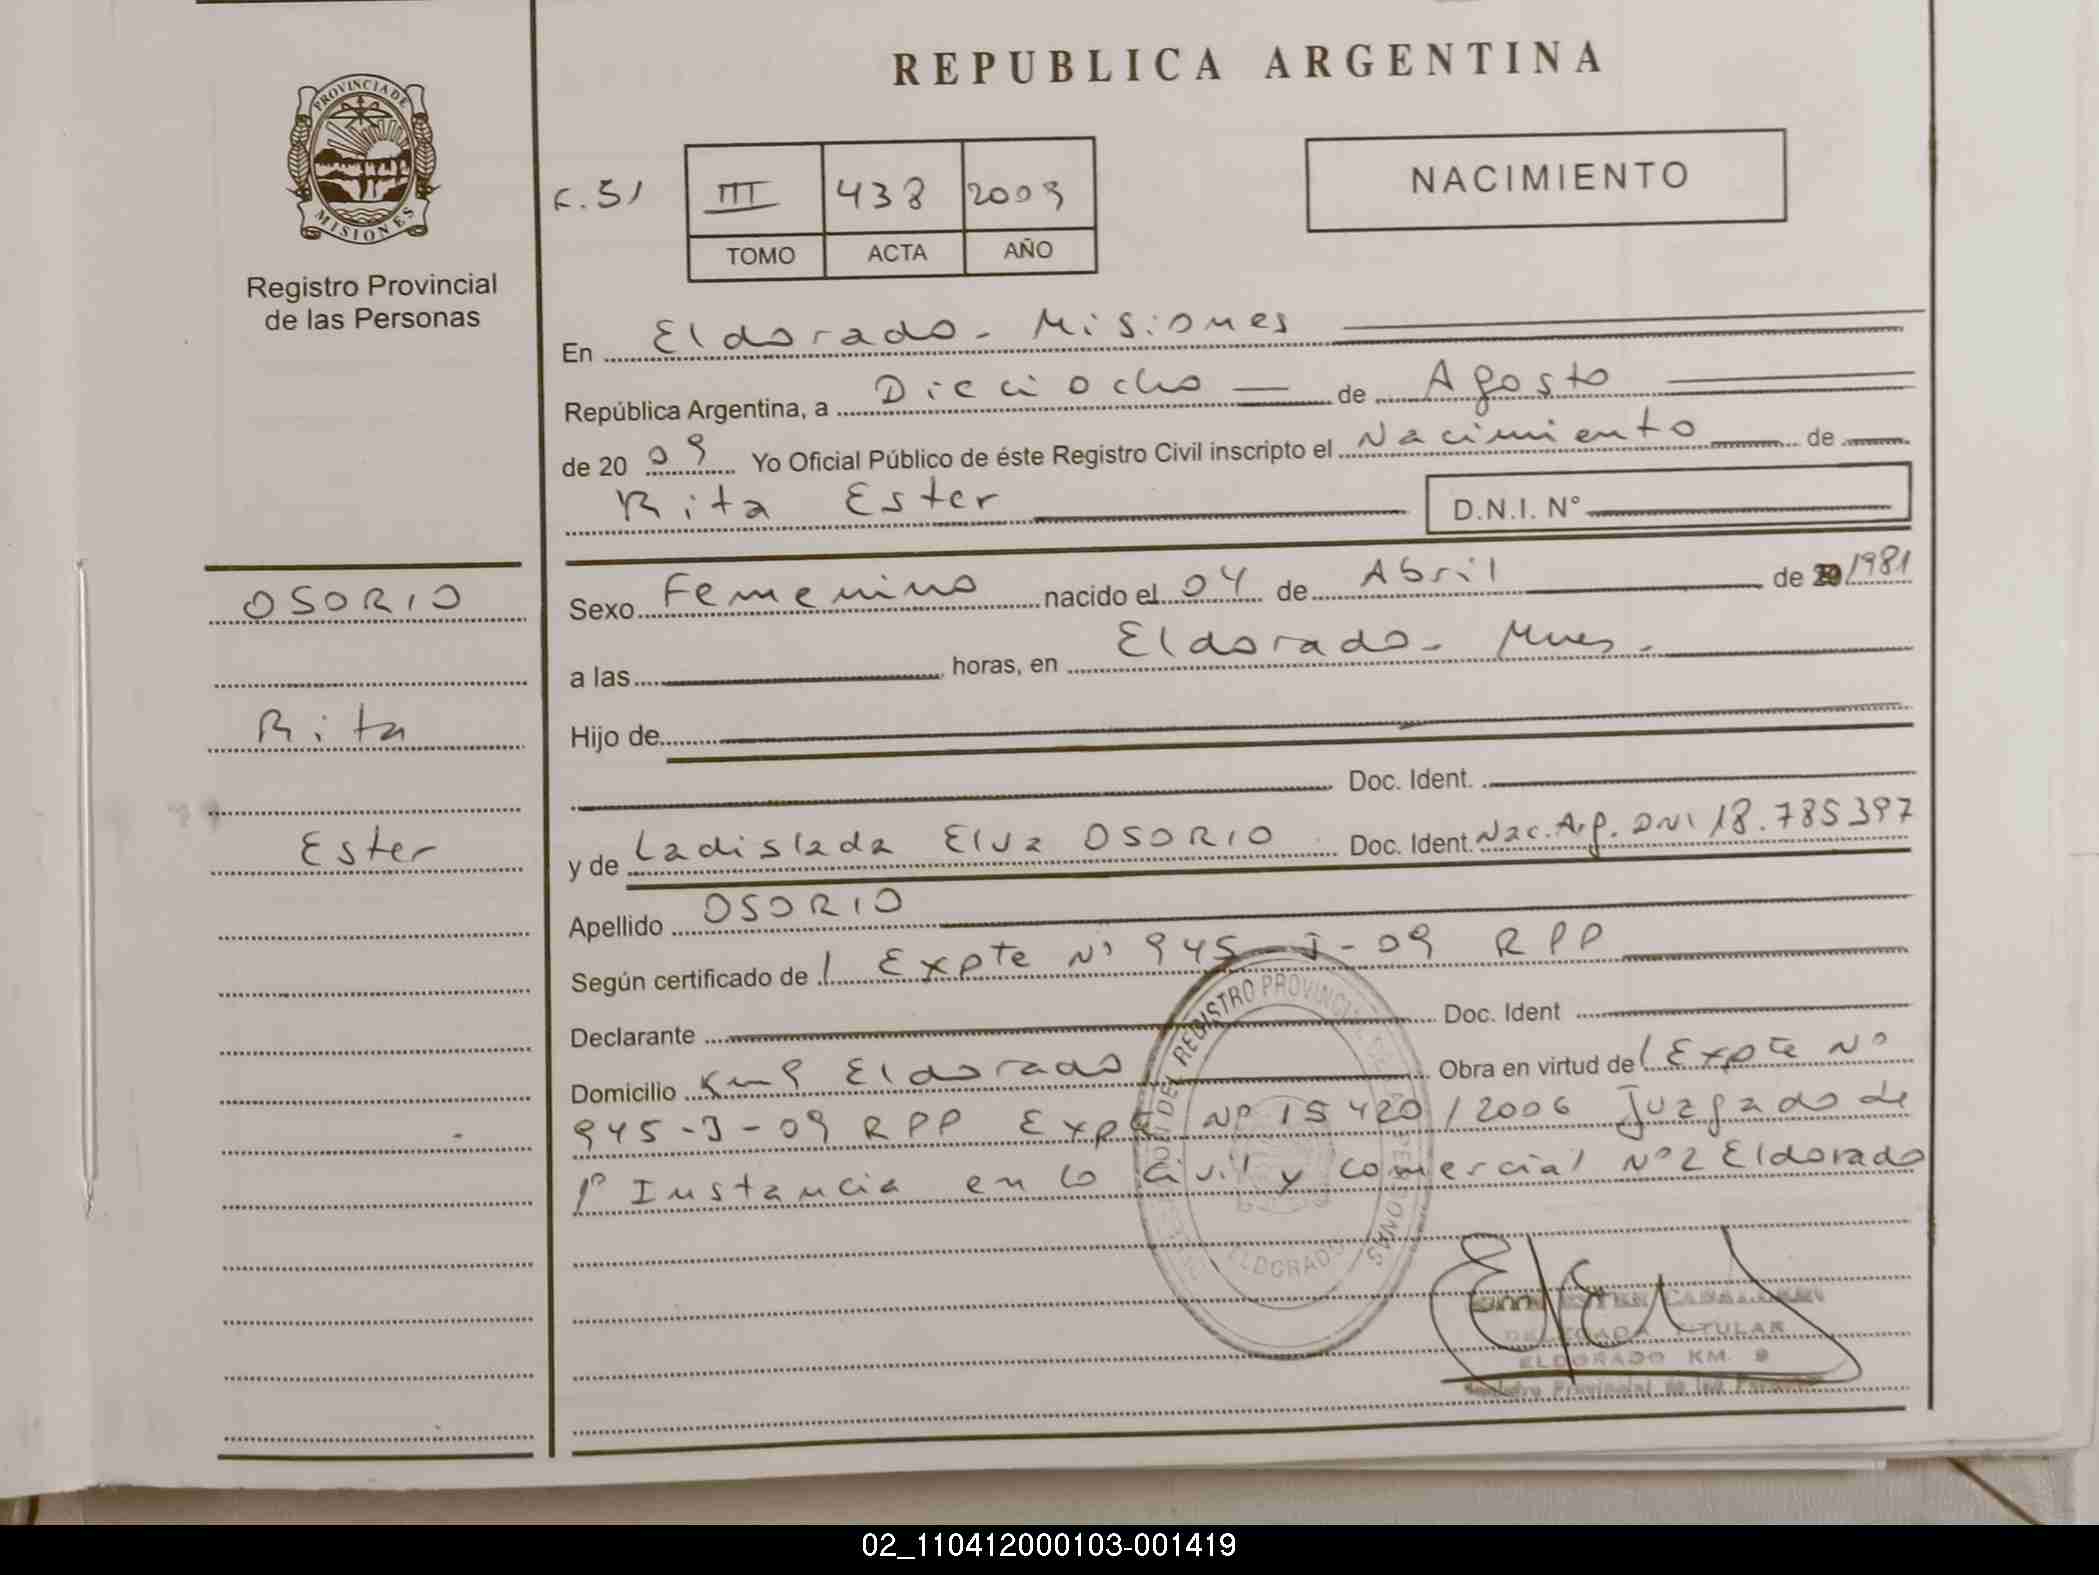 REPUBLICA ARGENTINA
PROVINCIA DE
MISIONES
Registro Provincial
de las Personas
F. 51
III 438 2009
TOMO ACTA AÑO
NACIMIENTO
En Eldorado - Misiones
República Argentina, a Dieciocho de Agosto
de 20 09 Yo Oficial Público de éste Registro Civil inscripto el Nacimiento de
Rita Ester D.N.I. N°
OSORIO
Rita
Ester
Sexo Femenino nacido el 04 de Abril de 1981
a las horas, en Eldorado - Mnes.
Hijo de
Doc. Ident.
y de Ladislada Elva OSORIO Doc. Ident. Nac. Arg. DNI 18.785397
Apellido OSORIO
Según certificado de l Expte N° 945-J-09 RPP
Declarante Doc. Ident
Domicilio Km 9 Eldorado Obra en virtud de l Expte N°
945-J-09 RPP Expte N° 15420/2006 Juzgado de
1° Instancia en lo Civil y Comercial N°2 Eldorado
DEL REGISTRO PROVINCIAL
PERSONAS
ELDORADO
ESTER
DELEGADA TITULAR
ELDORADO KM. 9
Registro Provincial de las Personas
02_110412000103-001419